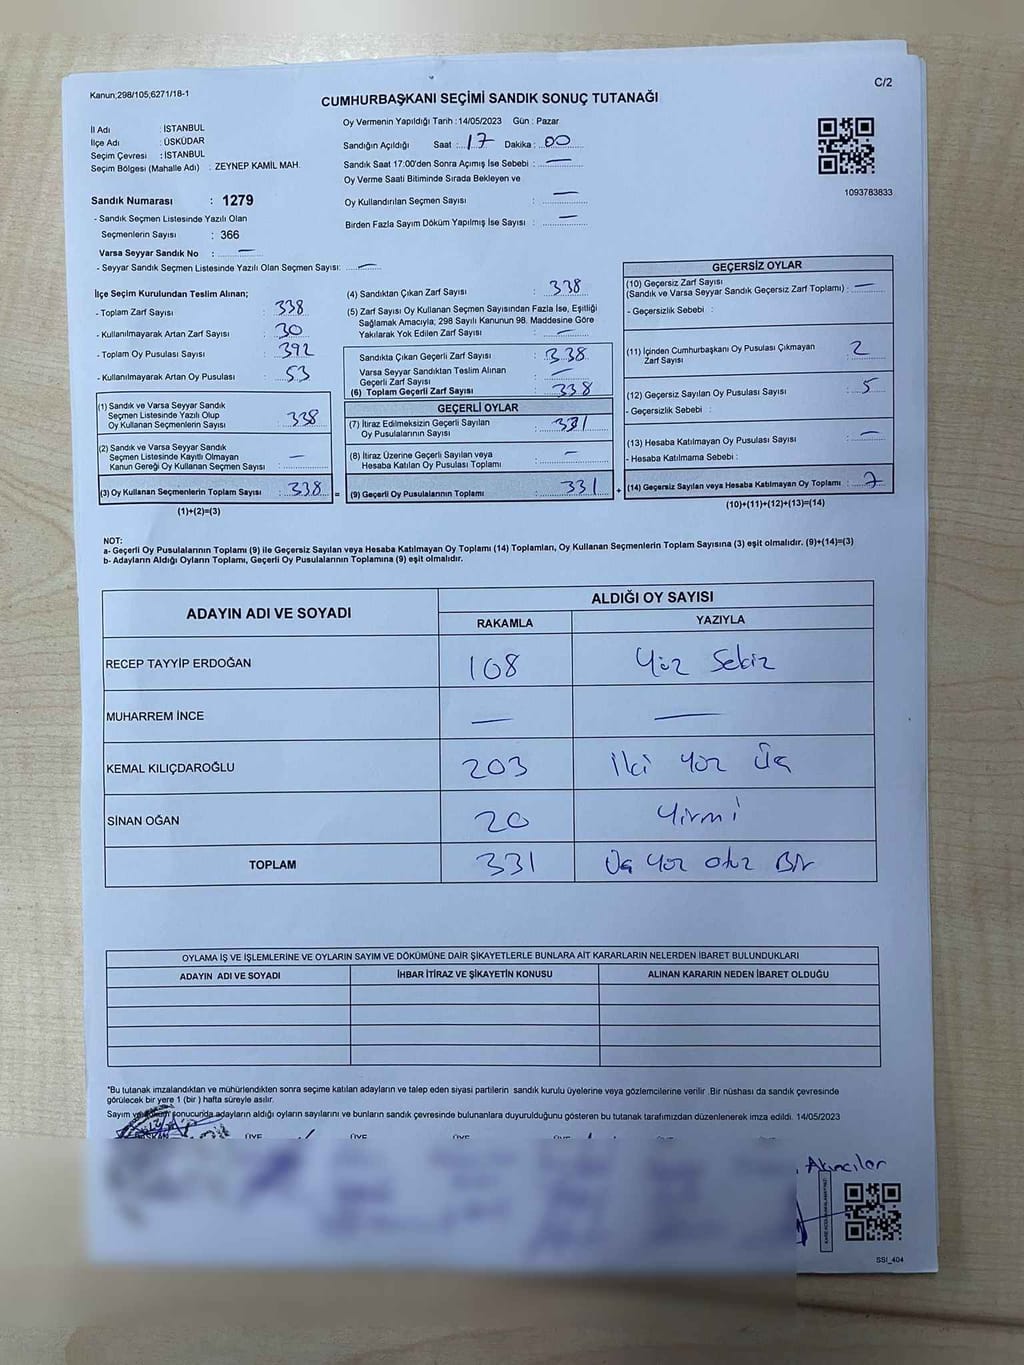 Kanun;298/105,6271/18-1
C/2
CUMHURBAŞKANI SEÇİMİ SANDIK SONUÇ TUTANAĞI
İl Adı : İSTANBUL
İlçe Adı : ÜSKÜDAR
Seçim Çevresi : İSTANBUL
Seçim Bölgesi (Mahalle Adı) : ZEYNEP KAMİL MAH.
Sandık Numarası : 1279
- Sandık Seçmen Listesinde Yazılı Olan
Seçmenlerin Sayısı : 366
Varsa Seyyar Sandık No : —
- Seyyar Sandık Seçmen Listesinde Yazılı Olan Seçmen Sayısı: —
Oy Vermenin Yapıldığı Tarih :14/05/2023 Gün : Pazar
Sandığın Açıldığı Saat : 17 Dakika : 00
Sandık Saat 17:00'den Sonra Açımış İse Sebebi : —
Oy Verme Saati Bitiminde Sırada Bekleyen ve
Oy Kullandırılan Seçmen Sayısı : —
Birden Fazla Sayım Döküm Yapılmış İse Sayısı : —
1093783833
İlçe Seçim Kurulundan Teslim Alınan;
- Toplam Zarf Sayısı : 338
- Kullanılmayarak Artan Zarf Sayısı : 30
- Toplam Oy Pusulası Sayısı : 392
- Kullanılmayarak Artan Oy Pusulası : 53
(1) Sandık ve Varsa Seyyar Sandık
Seçmen Listesinde Yazılı Olup
Oy Kullanan Seçmenlerin Sayısı : 338
(2) Sandık ve Varsa Seyyar Sandık
Seçmen Listesinde Kayıtlı Olmayan
Kanun Gereği Oy Kullanan Seçmen Sayısı : —
(3) Oy Kullanan Seçmenlerin Toplam Sayısı : 338 =
(1)+(2)=(3)
(4) Sandıktan Çıkan Zarf Sayısı : 338
(5) Zarf Sayısı Oy Kullanan Seçmen Sayısından Fazla İse, Eşitliği
Sağlamak Amacıyla, 298 Sayılı Kanunun 98. Maddesine Göre
Yakılarak Yok Edilen Zarf Sayısı : —
Sandıkta Çıkan Geçerli Zarf Sayısı : 338
Varsa Seyyar Sandıktan Teslim Alınan
Geçerli Zarf Sayısı : —
(6) Toplam Geçerli Zarf Sayısı : 338
GEÇERLİ OYLAR
(7) İtiraz Edilmeksizin Geçerli Sayılan
Oy Pusulalarının Sayısı : 331
(8) İtiraz Üzerine Geçerli Sayılan veya
Hesaba Katılan Oy Pusulası Toplamı : —
(9) Geçerli Oy Pusulalarının Toplamı : 331 +
GEÇERSİZ OYLAR
(10) Geçersiz Zarf Sayısı
(Sandık ve Varsa Seyyar Sandık Geçersiz Zarf Toplamı) : —
- Geçersizlik Sebebi :
(11) İçinden Cumhurbaşkanı Oy Pusulası Çıkmayan
Zarf Sayısı : 2
(12) Geçersiz Sayılan Oy Pusulası Sayısı : 5
- Geçersizlik Sebebi :
(13) Hesaba Katılmayan Oy Pusulası Sayısı : —
- Hesaba Katılmama Sebebi :
(14) Geçersiz Sayılan veya Hesaba Katılmayan Oy Toplamı : 7
(10)+(11)+(12)+(13)=(14)
NOT:
a- Geçerli Oy Pusulalarının Toplamı (9) ile Geçersiz Sayılan veya Hesaba Katılmayan Oy Toplamı (14) Toplamları, Oy Kullanan Seçmenlerin Toplam Sayısına (3) eşit olmalıdır. (9)+(14)=(3)
b- Adayların Aldığı Oyların Toplamı, Geçerli Oy Pusulalarının Toplamına (9) eşit olmalıdır.
ADAYIN ADI VE SOYADI
ALDIĞI OY SAYISI
RAKAMLA YAZIYLA
RECEP TAYYİP ERDOĞAN 108 Yüz Sekiz
MUHARREM İNCE — —
KEMAL KILIÇDAROĞLU 203 İki Yüz Üç
SİNAN OĞAN 20 Yirmi
TOPLAM 331 Üç Yüz Otuz Bir
OYLAMA İŞ VE İŞLEMLERİNE VE OYLARIN SAYIM VE DÖKÜMÜNE DAİR ŞİKAYETLERLE BUNLARA AİT KARARLARIN NELERDEN İBARET BULUNDUKLARI
ADAYIN ADI VE SOYADI İHBAR İTİRAZ VE ŞİKAYETİN KONUSU ALINAN KARARIN NEDEN İBARET OLDUĞU
*Bu tutanak imzalandıktan ve mühürlendikten sonra seçime katılan adayların ve talep eden siyasi partilerin sandık kurulu üyelerine veya gözlemcilerine verilir .Bir nüshası da sandık çevresinde
görülecek bir yere 1 (bir ) hafta süreyle asılır.
Sayım sonucunda adayların aldığı oyların sayılarını ve bunların sandık çevresinde bulunanlara duyurulduğunu gösteren bu tutanak tarafımızdan düzenlenerek imza edildi. 14/05/2023
BAŞKAN ÜYE ÜYE ÜYE ÜYE
Akıncılar
SSI_404